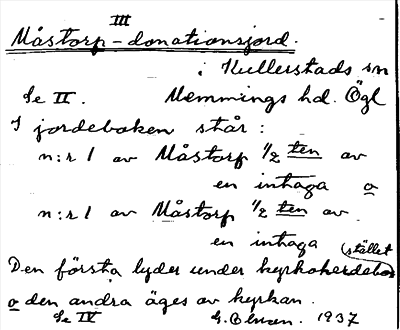 III
Måstorp - donationsjord.
i Kullerstads sn
Se II. Memmings hd. Ögl
I jordeboken står:
n:r 1 av Måstorp 1/2 ten av
en inhaga o
n:r 1 av Måstorp 1/2 ten av
en inhaga
Den första lyder under kyrkoherdebo(stället
o den andra äges av kyrkan.
Se IV G. Olsson. 1937